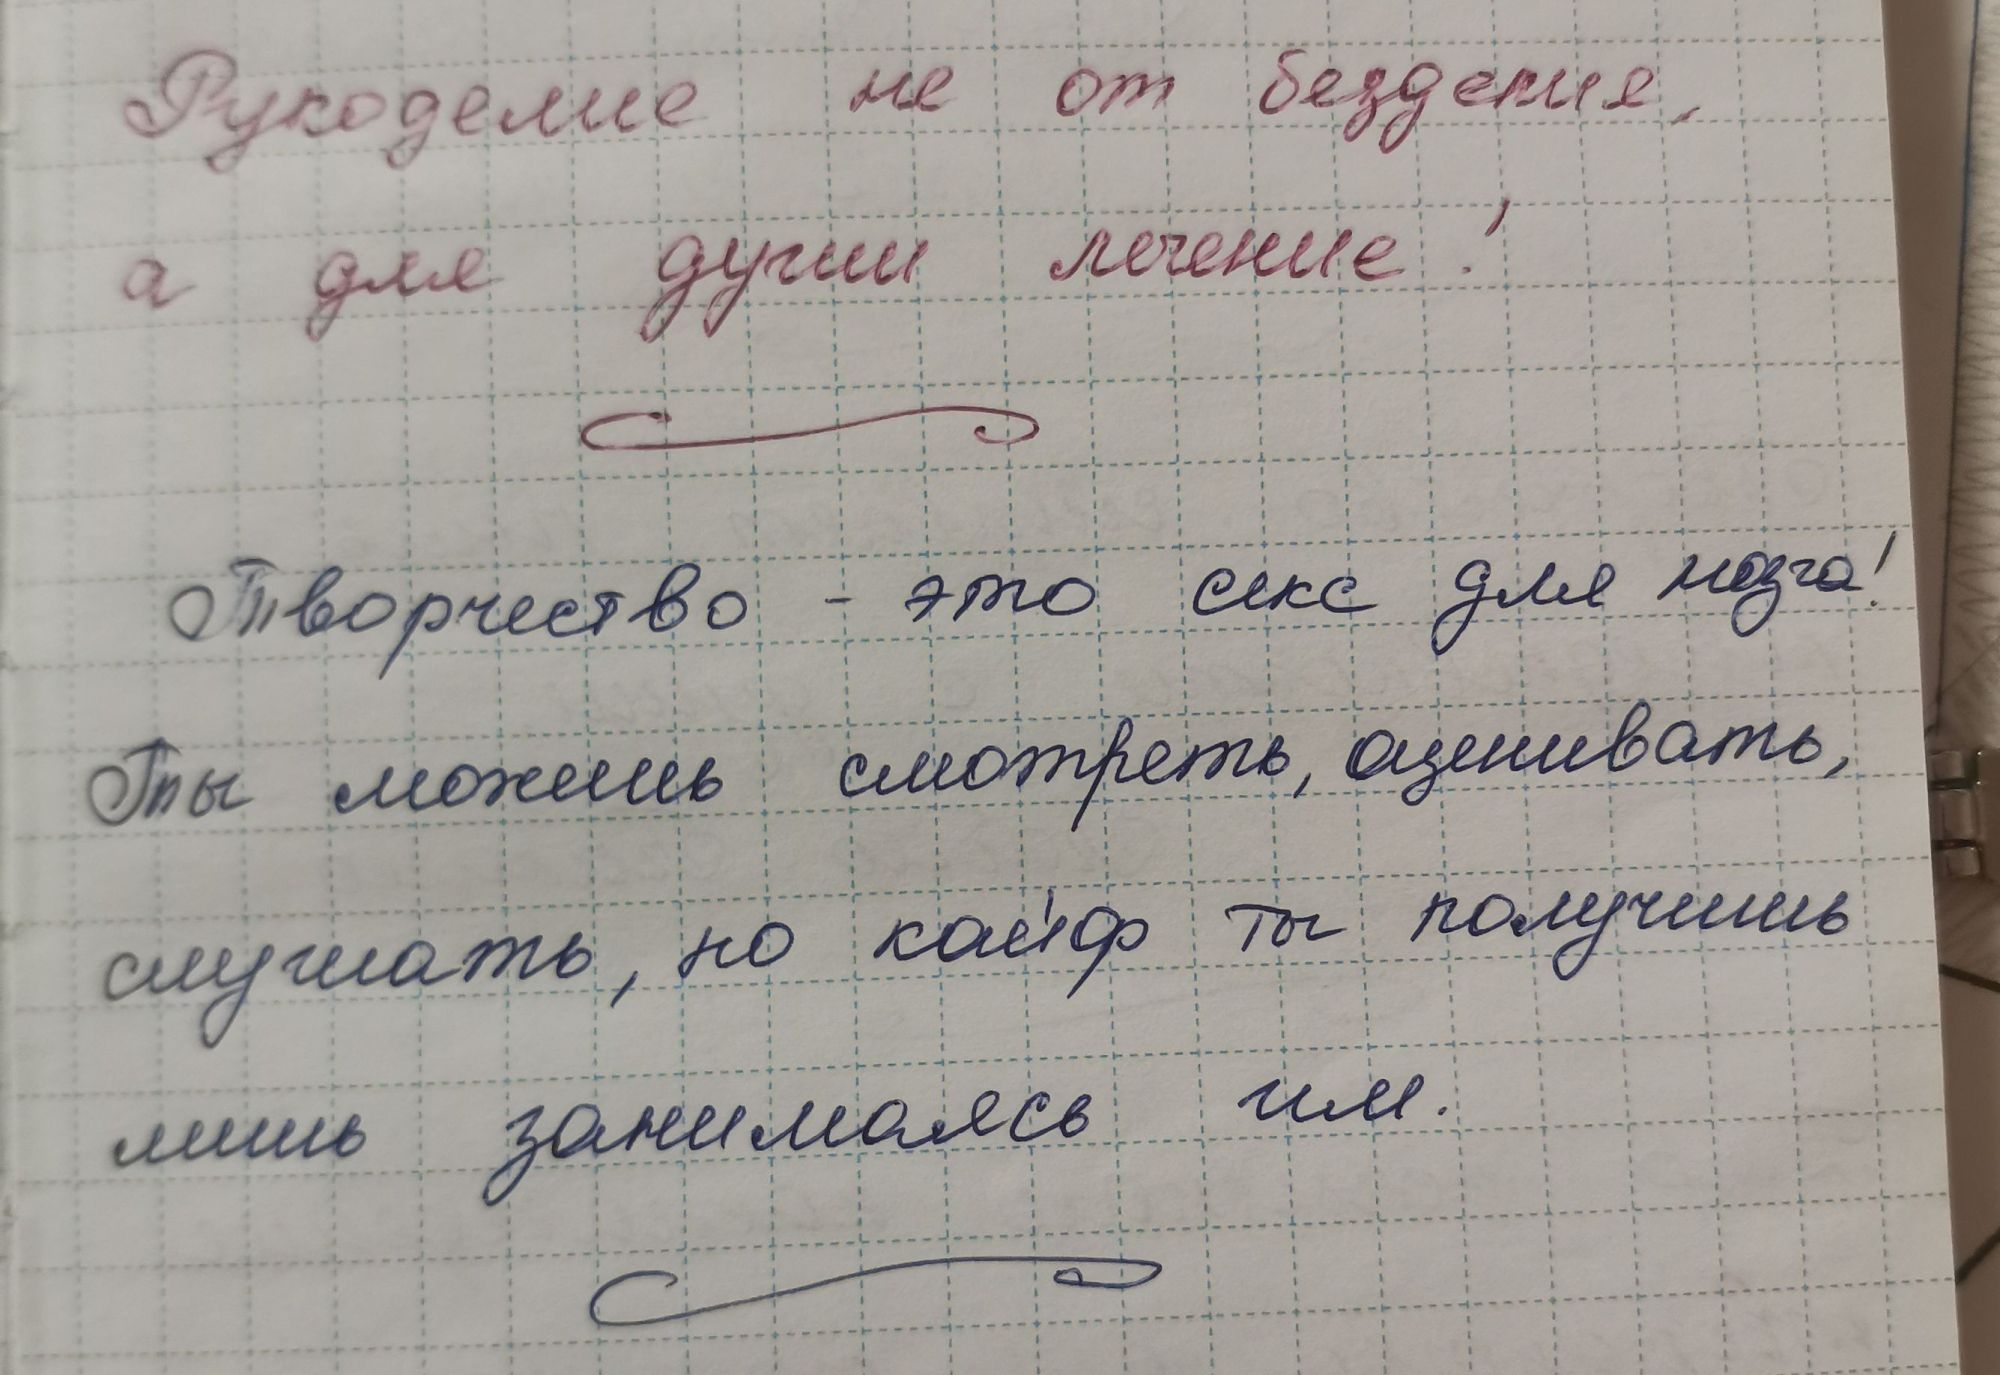 Рукоделие не от безделия,
а для души лечение!
Творчество - это секс для мозга!
Ты можешь смотреть, оценивать,
слушать, но кайф ты получишь
лишь занимаясь им.